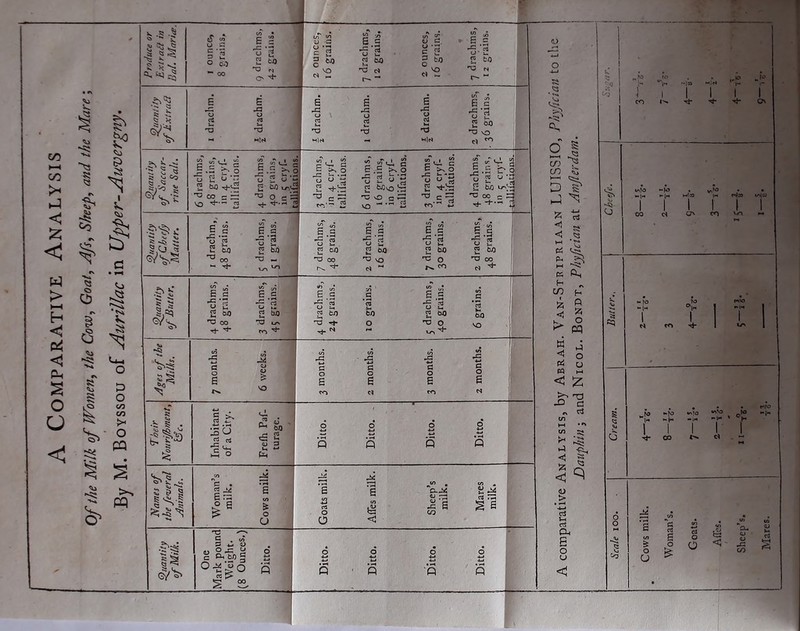 A COMPARATIVE ANALYSIS
Of the Milk of Women, the Cow, Goat, Aſs, Sheep, and the Mare;
By M. BOYSSOU of Aurillac in Upper-Auvergny.
Quantity of Milk. Names of the ſeveral Animals. Their Nouriſhment, &c. Ages of the Milks. Quantity of Butter. Quantity of Cheeſy Matter. Quantity of Saccarrine Salt. Quantity of Extract Produce or Extract in Bal. Mariæ.
One Mark pound Weight. (8 Ounces.) Woman's milk. Inhabitant of a City. 7 months. 4 drachms, 48 grains. 1 drachm, 48 grains. 6 drachms, 48 grains, in 4 cryſtallifations. 1 drachm. 1 ounce, 8 grains,
Ditto. Cows milk. Freſh Paſturage. 6 weeks. 3 drachms, 45 grains. 5 drachms, 51 grains. 4 drachms, 40 grains. in 5 cryſtallifations. ½ drachm. 9 drachms, 42 grains.
Ditto. Goats milk. Ditto. 3 months. 4 drachms, 24 grains. 7 drachms, 48 grains. 3 drachms, in 4 cryſtallifations. ½ drachm. 2 ounces, 16 grains.
Ditto. Aſſes milk. Ditto. 2 months. 10 grains. 2 drachms, 16 grains. 6 drachms, 16 grains, in 6 cryſtallifations. 1 drachm. 7 drachms, 12 grains,
Ditto. Sheep's milk. Ditto. 3 months. 5 drachms, 40 grains. 7 drachms, 30 grains. 3 drachms, in 4 cryſtallifations. ½ drachm. 2 ounces, 16 grains.
Ditto. Mares milk. Ditto. 2 months. 6 grains. 2 drachms, 48 grains. 4 drachms, 48 grains, in 5 cryſtallifations. 2 drachms, 36 grains. 7 drachms, 12 grains.
A comparative ANALYSIS, by ABRAH. VAN-STRIPRIAAN LUISIO, Phyſician to the
Dauphin; and NICOL. BONDT, Phyſician at Amſterdam.
Scale 100. Cream. Butter. Cheeſe. Sugar.
Cows milk. 4 2 8 3
Woman's. 8 3 2 7
Goats. 7 4 9 4
Aſſes. 2 — 3 4
Sheep's. 11 5 15 4
Mares. — 1 9